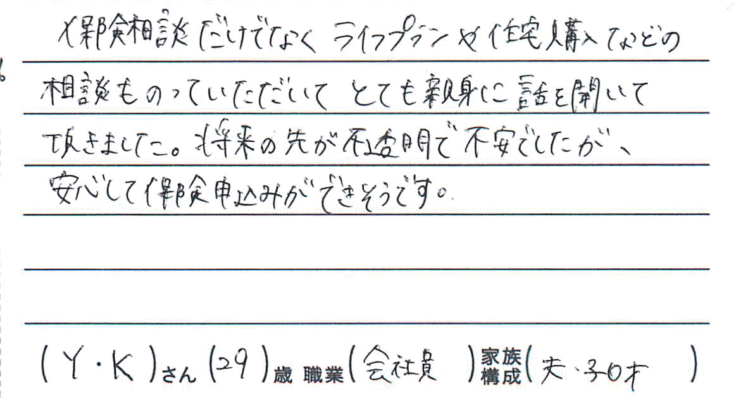 保険相談だけでなく ライフプランや住宅購入などの
相談ものっていただいて とても親身に話を聞いて
頂きました。将来の先が不透明で不安でしたが、
安心して保険申込みができそうです。
(Y・K)さん(29)歳 職業(会社員)家族構成(夫・子0才)